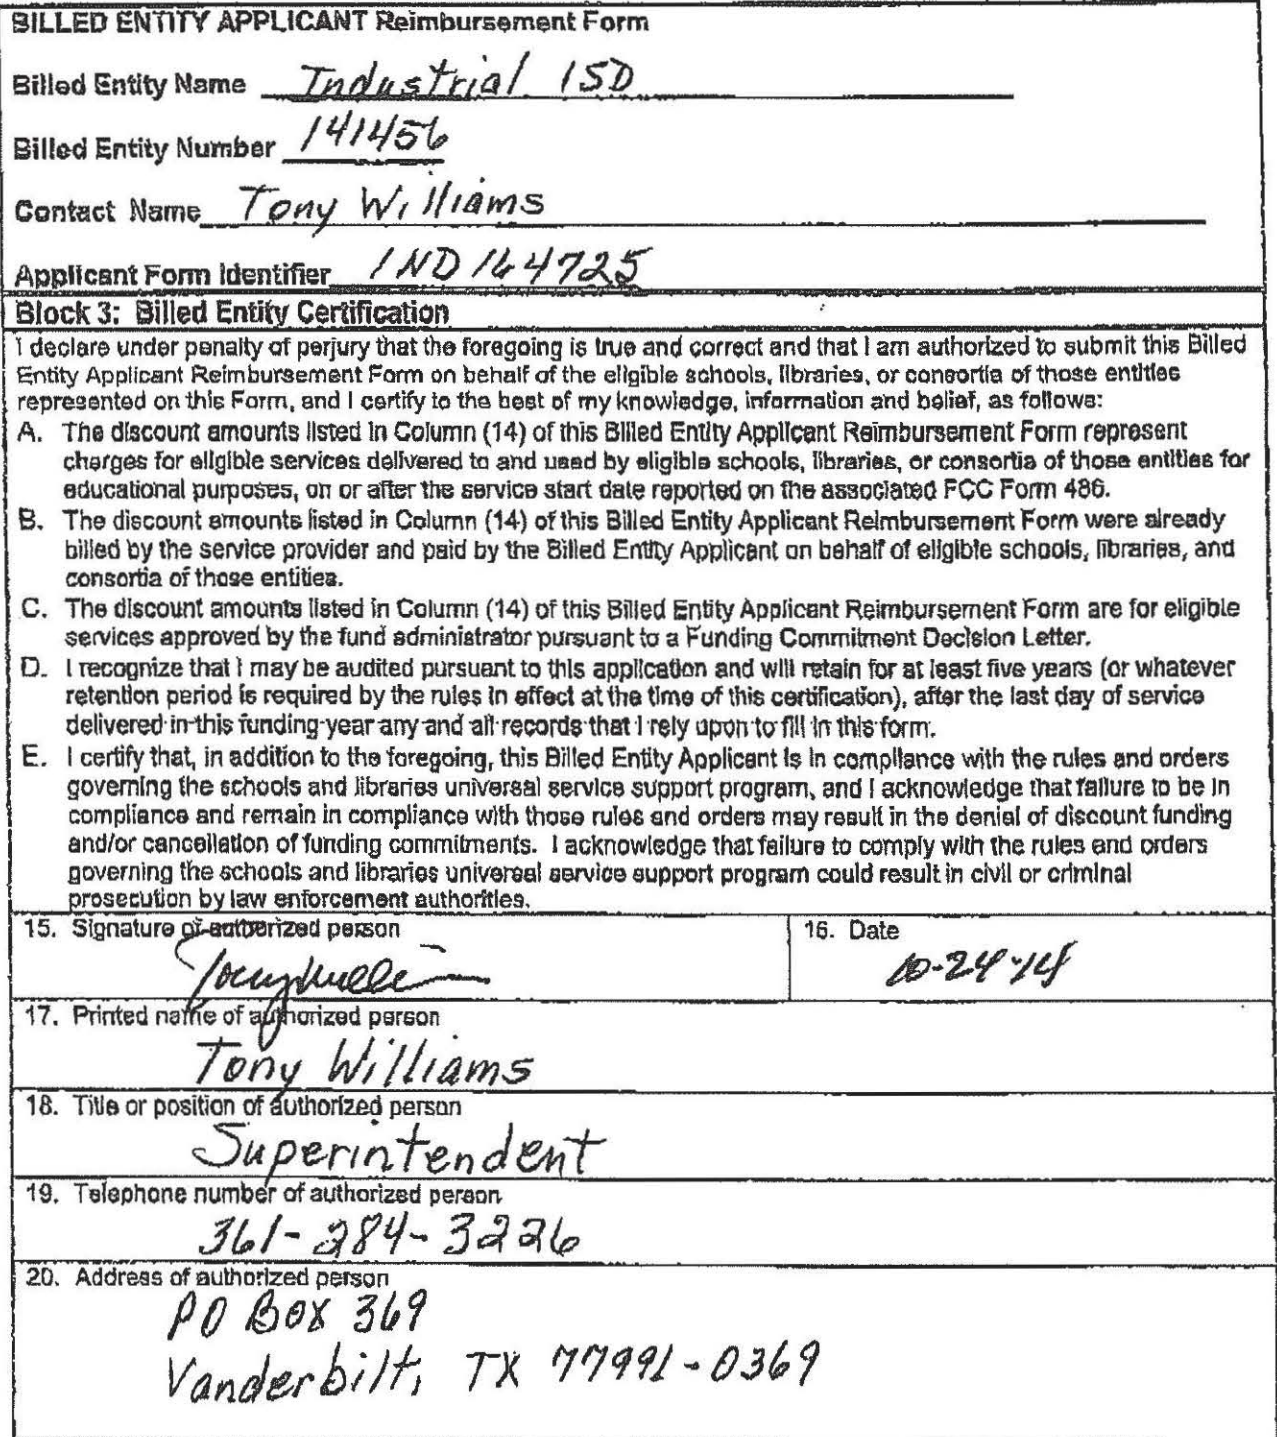 BILLED ENTITY APPLICANT Reimbursement Form
Billed Entity Name Industrial ISD
Billed Entity Number 141456
Contact Name Tony Williams
Applicant Form Identifier IND164725
Block 3: Billed Entity Certification
I declare under penalty of perjury that the foregoing is true and correct and that I am authorized to submit this Billed
Entity Applicant Reimbursement Form on behalf of the eligible schools, libraries, or consortia of those entities
represented on this Form, and I certify to the best of my knowledge, information and belief, as follows:
A. The discount amounts listed in Column (14) of this Billed Entity Applicant Reimbursement Form represent
charges for eligible services delivered to and used by eligible schools, libraries, or consortia of those entities for
educational purposes, on or after the service start date reported on the associated FCC Form 486.
B. The discount amounts listed in Column (14) of this Billed Entity Applicant Reimbursement Form were already
billed by the service provider and paid by the Billed Entity Applicant on behalf of eligible schools, libraries, and
consortia of those entities.
C. The discount amounts listed in Column (14) of this Billed Entity Applicant Reimbursement Form are for eligible
services approved by the fund administrator pursuant to a Funding Commitment Decision Letter.
D. I recognize that I may be audited pursuant to this application and will retain for at least five years (or whatever
retention period is required by the rules in effect at the time of this certification), after the last day of service
delivered in this funding year any and all records that I rely upon to fill in this form.
E. I certify that, in addition to the foregoing, this Billed Entity Applicant is in compliance with the rules and orders
governing the schools and libraries universal service support program, and I acknowledge that failure to be in
compliance and remain in compliance with those rules and orders may result in the denial of discount funding
and/or cancellation of funding commitments. I acknowledge that failure to comply with the rules and orders
governing the schools and libraries universal service support program could result in civil or criminal
prosecution by law enforcement authorities.
15. Signature of authorized person
16. Date
10-24-14
17. Printed name of authorized person
Tony Williams
18. Title or position of authorized person
Superintendent
19. Telephone number of authorized person
361-284-3226
20. Address of authorized person
PO Box 369
Vanderbilt, TX 77991-0369